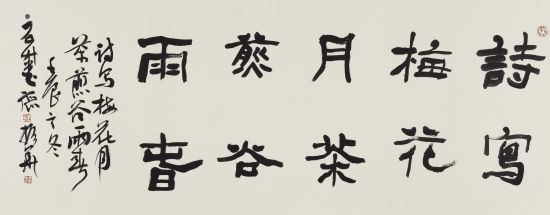 詩寫
梅花
月茶
煎谷
雨春
诗写梅花月
茶煎谷雨春
壬辰之冬